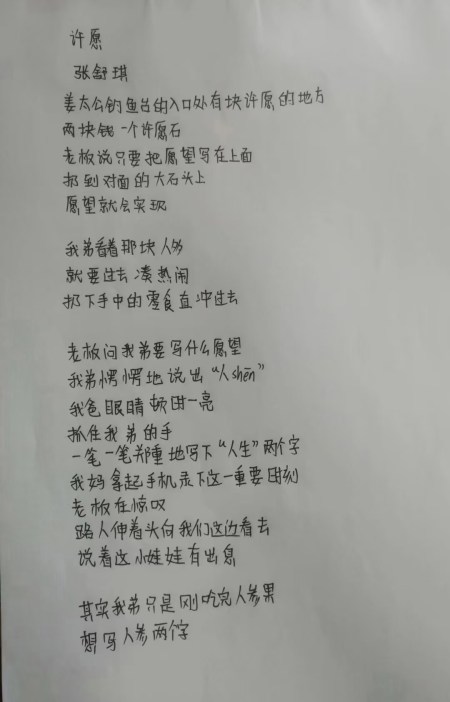 许愿
张舒琪
姜太公钓鱼台的入口处有块许愿的地方
两块钱一个许愿石
老板说只要把愿望写在上面
扔到对面的大石头上
愿望就会实现
我弟看着那块人多
就要过去凑热闹
扔下手中的零食直冲过去
老板问我弟要写什么愿望
我弟愣愣地说出“人shēn”
我爸眼睛顿时一亮
抓住我弟的手
一笔一笔郑重地写下“人生”两个字
我妈拿起手机录下这一重要时刻
老板在惊叹
路人伸着头向我们这边看去
说着这小娃娃有出息
其实我弟只是刚吃完人参果
想写人参两个字